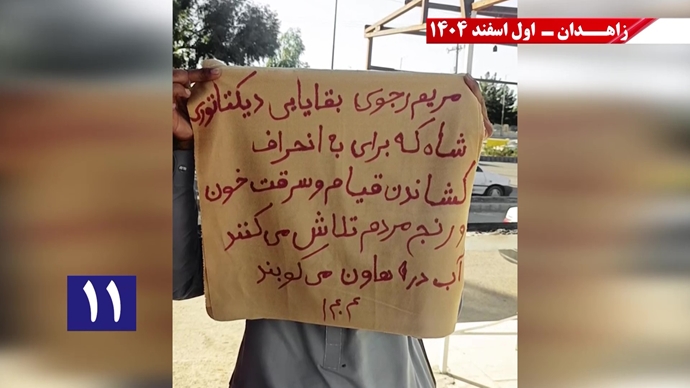 زاهدان - اول اسفند ۱۴۰۴
مریم رجوی بقایایی دیکتاتوری
شاه که برای به انحراف
کشاندن قیام و سرقت خون
و رنج مردم تلاش می‌کنند
آب در هاون می‌کوبند
۱۴۰۴
۱۱